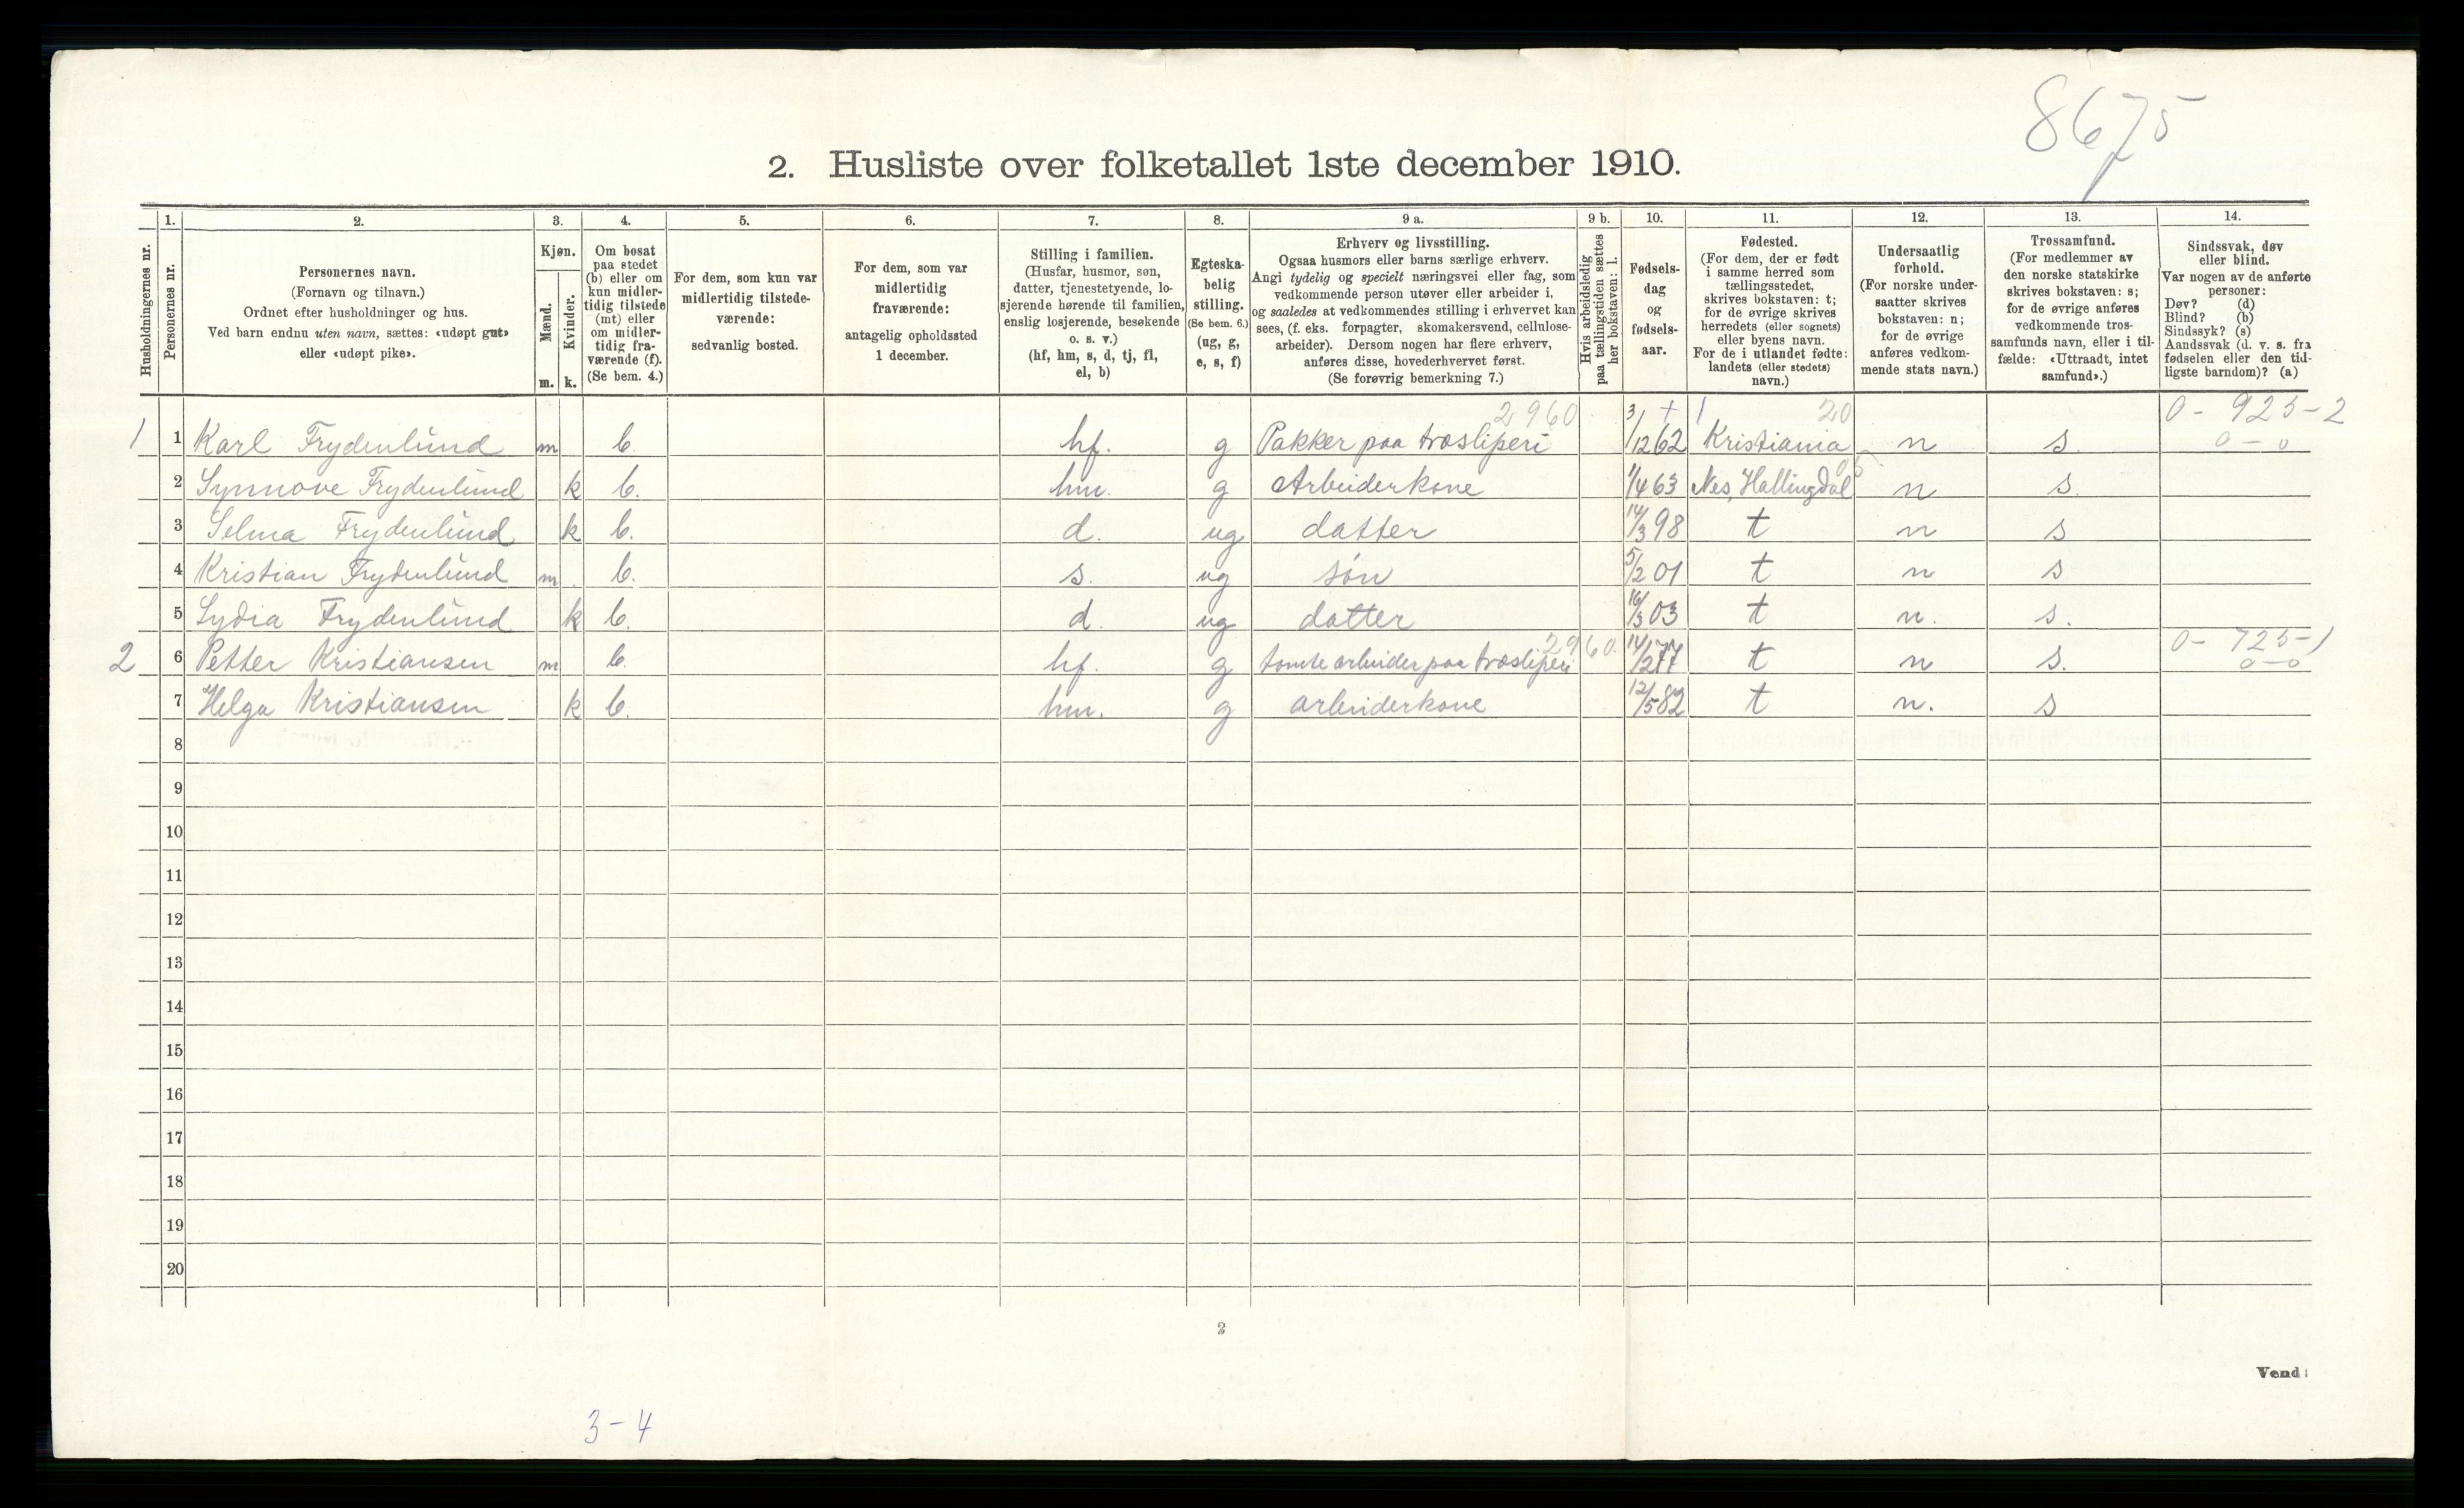 8675
2. Husliste over folketallet 1ste december 1910.
1. 2. 3. 4. 5. 6. 7. 8. 9 a. 9 b. 10. 11. 12. 13. 14.
Husholdningernes nr.
Personernes nr.
Personernes navn.
(Fornavn og tilnavn.)
Ordnet efter husholdninger og hus.
Ved barn endnu uten navn, sættes: «udøpt gut»
eller «udøpt pike».
Kjøn.
Mænd.
Kvinder.
m. k.
Om bosat
paa stedet
(b) eller om
kun midler-
tidig tilstede
(mt) eller
om midler-
tidig fra-
værende (f).
(Se bem. 4.)
For dem, som kun var
midlertidig tilstede-
værende:
sedvanlig bosted.
For dem, som var
midlertidig
fraværende:
antagelig opholdssted
1 december.
Stilling i familien.
(Husfar, husmor, søn,
datter, tjenestetyende, lo-
sjerende hørende til familien,
enslig losjerende, besøkende
o. s. v.)
(hf, hm, s, d, tj, fl,
el, b)
Egteska-
belig
stilling.
(Se bem. 6.)
(ug, g,
e, s, f)
Erhverv og livsstilling.
Ogsaa husmors eller barns særlige erhverv.
Angi tydelig og specielt næringsvei eller fag, som
vedkommende person utøver eller arbeider i,
og saaledes at vedkommendes stilling i erhvervet kan
sees, (f. eks. forpagter, skomakersvend, cellulose-
arbeider). Dersom nogen har flere erhverv,
anføres disse, hovederhvervet først.
(Se forøvrig bemerkning 7.)
Hvis arbeidsledig
paa tællingstiden sættes
her bokstaven: l.
Fødsels-
dag
og
fødsels-
aar.
Fødested.
(For dem, der er født
i samme herred som
tællingsstedet,
skrives bokstaven: t;
for de øvrige skrives
herredets (eller sognets)
eller byens navn.
For de i utlandet fødte:
landets (eller stedets)
navn.)
Undersaatlig
forhold.
(For norske under-
saatter skrives
bokstaven: n;
for de øvrige
anføres vedkom-
mende stats navn.)
Trossamfund.
(For medlemmer av
den norske statskirke
skrives bokstaven: s;
for de øvrige anføres
vedkommende tros-
samfunds navn, eller i til-
fælde: «Uttraadt, intet
samfund».)
Sindssvak, døv
eller blind.
Var nogen av de anførte
personer:
Døv? (d)
Blind? (b)
Sindssyk? (s)
Aandssvak (d. v. s. fra
fødselen eller den tid-
ligste barndom)? (a)
2960 + 1 20 0-925-2
1 1 Karl Frydenlund m b. hf. g Pakker paa træsliperi 3/12 62 Kristiania n s. 0-0
2 Synnøve Frydenlund k b. hm. g Arbeiderkone 1/4 63 Nes, Hallingdal n s.
3 Selma Frydenlund k b. d. ug datter 14/3 98 t n s
4 Kristian Frydenlund m b. s. ug søn 5/2 01 t n s
5 Lydia Frydenlund k b. d. ug datter 16/3 03 t n. s.
2960. 0-725-1
2 6 Petter Kristiansen m b. hf. g tomte arbeider paa træsliperi 14/12 77 t n s. 0-0
7 Helga Kristiansen k b. hm. g arbeiderkone 12/5 82 t n. s
8
9
10
11
12
13
14
15
16
17
18
19
20
2
Vend!
3-4